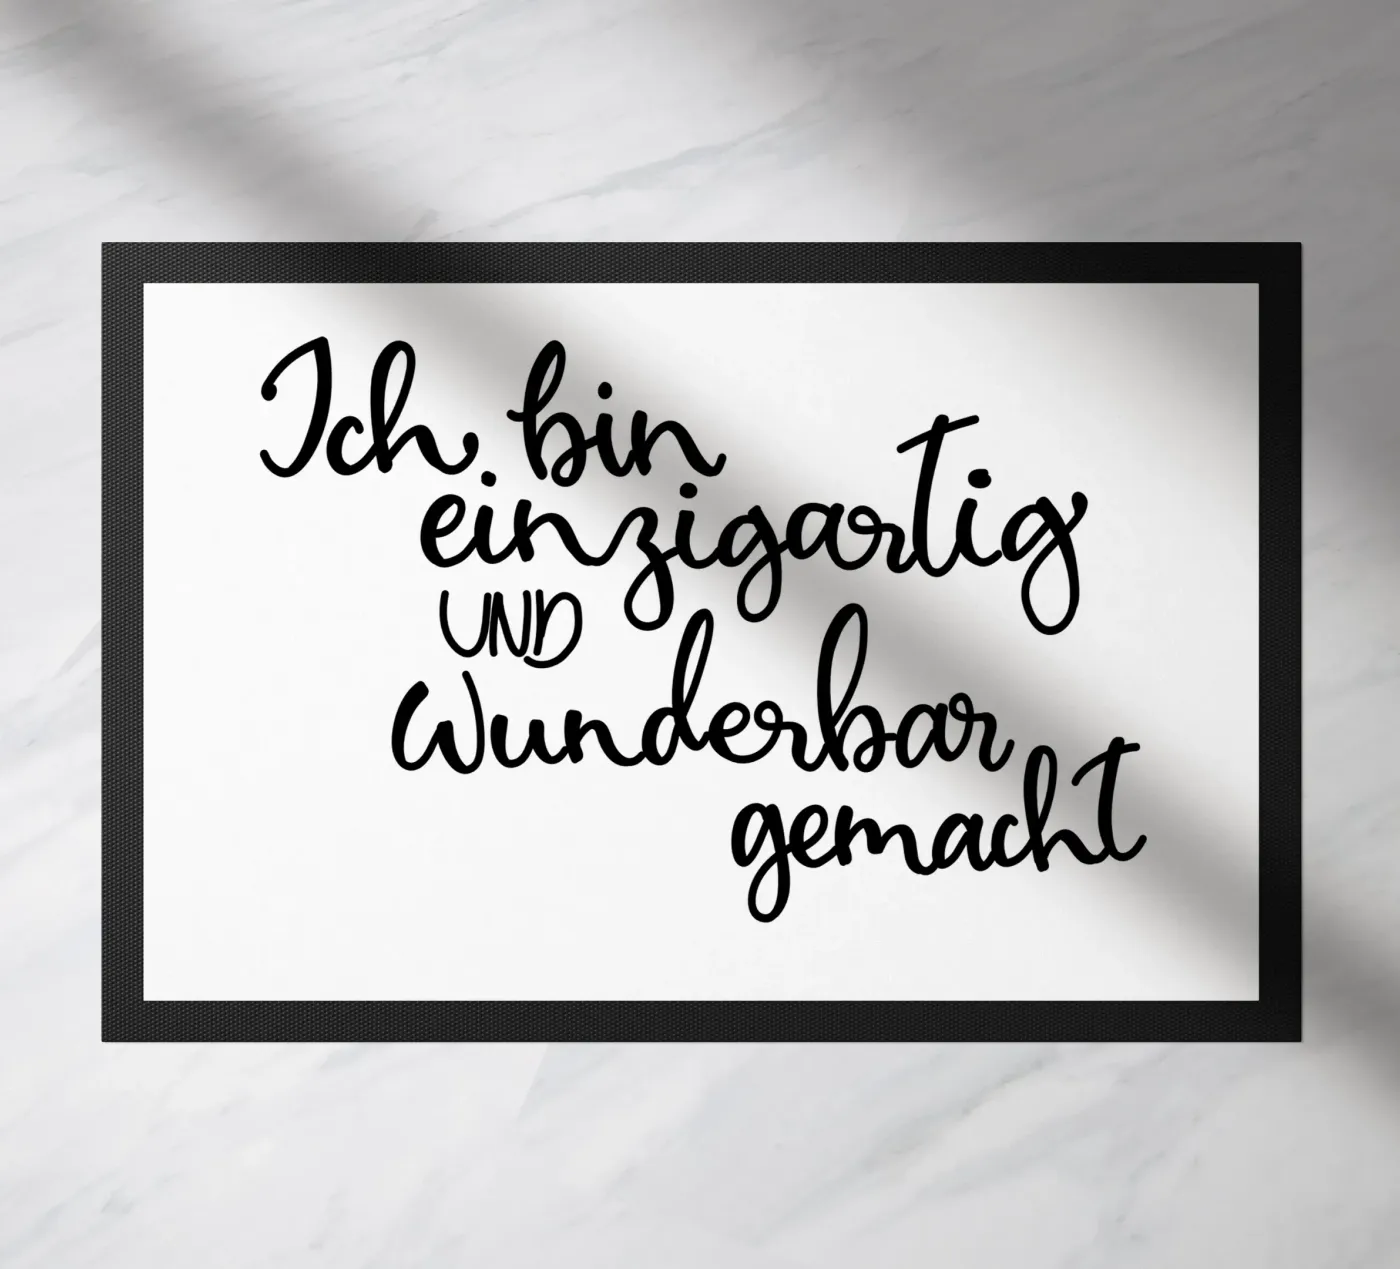 Ich bin
einzigartig
UND
Wunderbar
gemacht